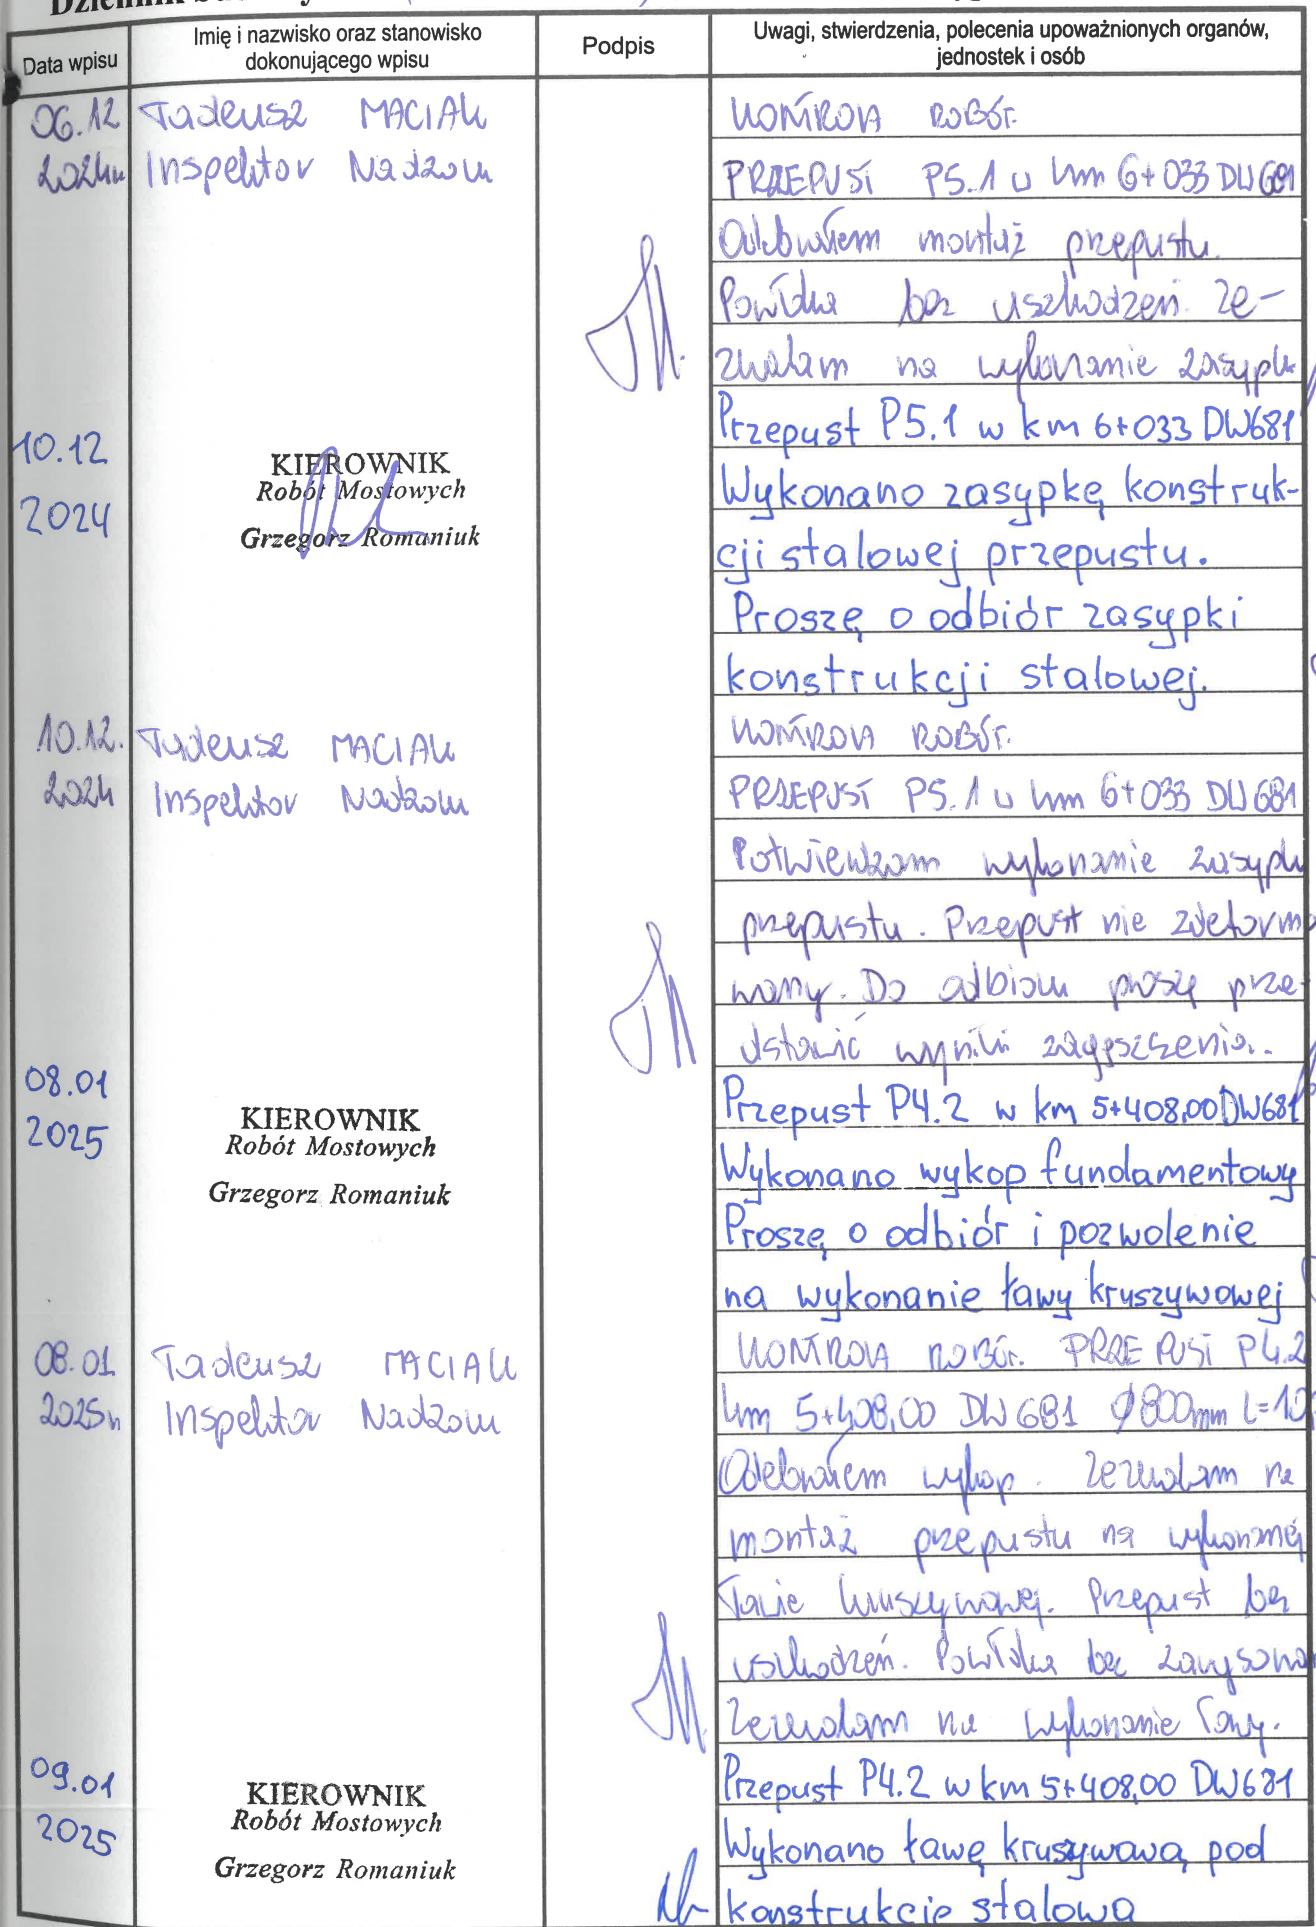 Data wpisu
Imię i nazwisko oraz stanowisko
dokonującego wpisu
Podpis
Uwagi, stwierdzenia, polecenia upoważnionych organów,
jednostek i osób
06.12
2024r
Tadeusz MACIAK
Inspektor Nadzoru
KONTROLA ROBÓT.
PRZEPUST P5.1 w km 6+033 DW681
Odebrałem montaż przepustu.
Powłoka bez uszkodzeń. Ze-
zwalam na wykonanie zasypki
10.12
2024
KIEROWNIK
Robót Mostowych
Grzegorz Romaniuk
Przepust P5.1 w km 6+033 DW681
Wykonano zasypkę konstruk-
cji stalowej przepustu.
Proszę o odbiór zasypki
konstrukcji stalowej.
10.12.
2024
Tadeusz MACIAK
Inspektor Nadzoru
KONTROLA ROBÓT.
PRZEPUST P5.1 w km 6+033 DW681
Potwierdzam wykonanie zasypki
przepustu. Przepust nie zdeformo
wany. Do odbioru proszę prze-
dstawić wyniki zagęszczenia.
08.01
2025
KIEROWNIK
Robót Mostowych
Grzegorz Romaniuk
Przepust P4.2 w km 5+408,00 DW681
Wykonano wykop fundamentowy
Proszę o odbiór i pozwolenie
na wykonanie ławy kruszywowej
08.01
2025r
Tadeusz MACIAK
Inspektor Nadzoru
KONTROLA ROBÓT. PRZEPUST P4.2
km 5+408,00 DW681 Ø800mm L=10
Odebrałem wykop. Zezwalam na
montaż przepustu na wykonanej
ławie kruszywowej. Przepust bez
uszkodzeń. Powłoka bez zarysowa
Zezwalam na wykonanie ławy.
09.01
2025
KIEROWNIK
Robót Mostowych
Grzegorz Romaniuk
Przepust P4.2 w km 5+408,00 DW681
Wykonano ławę kruszywową pod
konstrukcję stalową